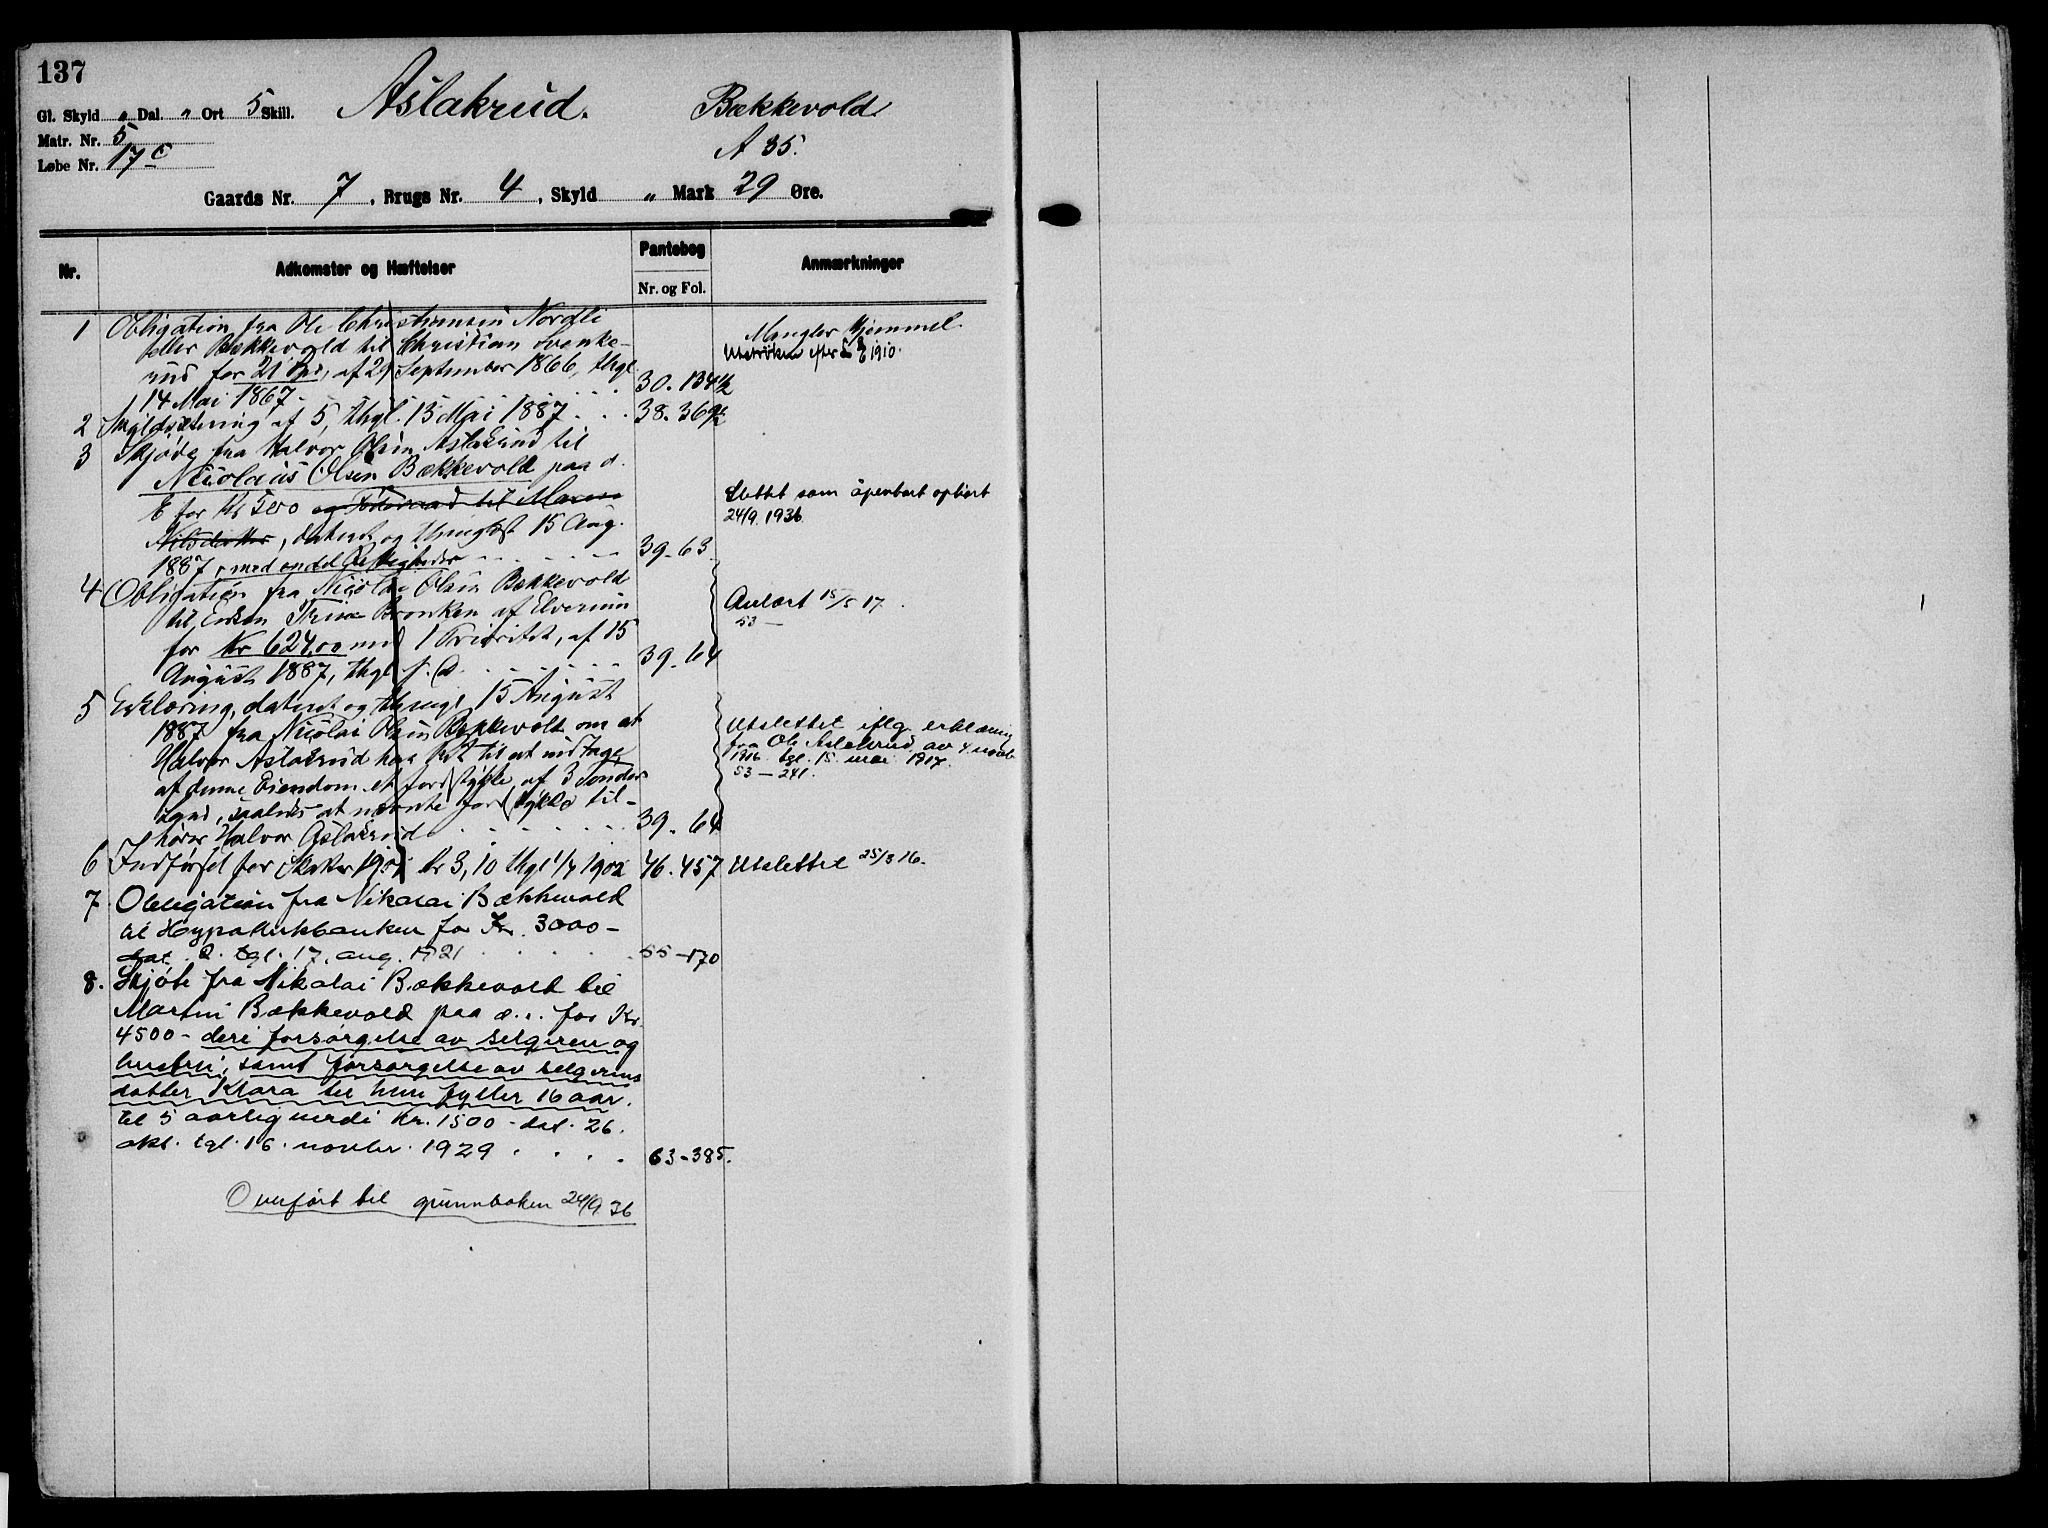 137
Gl. Skyld " Dal. " Ort 5 Skill. Aslakrud. Bækkevold
Matr. Nr. 5 A 35.
Løbe Nr. 17 c
Gaards Nr. 7, Brugs Nr. 4, Skyld " Mark 29 Øre.
Nr. Adkomster og Hæftelser Pantebog Anmærkninger
Nr. og Fol.
1 Obligation fra Ole Christiansen Nordli Mangler Hjemmel.
eller Bækkevold til Christian Svenke- efter L 1910.
rud for 21 Spd, af 29 September 1866, thgl
14 Mai 1867. 30. 134 1/2
2 Skyldsætning af 5, thgl. 13 Mai 1887 38. 369
3 Skjøde fra Halvor Olsen Aslakrud til
Nicolaus Olsen Bækkevold paa d.
E for Kr 500 og Føderaad til Maren Slettet som åpenbart ophørt
Nilsdatter, dateret og thinglæst 15 Aug. 24/9. 1936.
1887, med endel Rettigheder 39-63
4 Obligation fra Nicolai Olsen Bækkevold
til Enken Trine Bronken af Elverum Avlæst 15/5 17.
for Kr 624,00 med 1 Prioritet, af 15 53 —
August 1887, thgl s. D. 39-64
5 Erklæring, dateret og thingl 15 August
1887 fra Nicolai Olsen Bækkevold om at Utslettet iflg. erklæring
Halvor Aslakrud har Ret til at indtage fra Ole Aslakrud av 4. novbr
af denne Eiendom et jordstykke af 3 Tønder 1916 tgl. 15 mai 1917.
Land, saaledes at nævnte jordstykke til- 53 — 241.
hører Halvor Aslakrud 39. 64
6 Indførsel for Skatter 1901 kr 3,10 thgl 1/4 1902 46. 457 Utslettet 25/3 16.
7. Obligation fra Nikolai Bækkevold
til Hypotekbanken for Kr. 3000 —
dat. 2. tgl. 17. aug. 1921 55-170
8. Skjøte fra Nikolai Bækkevold til
Martin Bækkevold paa d... for Kr.
4500 - deri forsørgelse av selgeren og
hustru, samt forsørgelse av selgerens
datter Klara til hun fyller 16 aar.
til 5 aarlig verdi Kr. 1500 - dat. 26.
okt. tgl. 16. novbr. 1929 63-385.
Overført til grunnboken 24/9 36